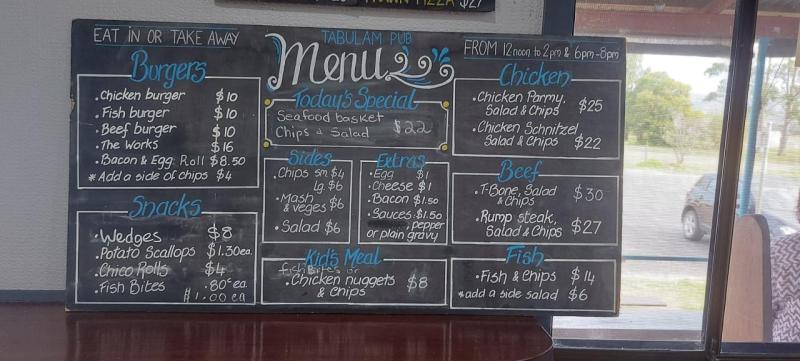 PIZZA $27
EAT IN OR TAKE AWAY
TABULAM PUB
Menu
FROM 12noon to 2pm & 6pm-8pm
Burgers
• Chicken burger $10
• Fish burger $10
• Beef burger $10
• The Works $16
• Bacon & Egg Roll $8.50
* Add a side of chips $4
Snacks
• Wedges $8
• Potato Scallops $1.30ea.
• Chico Rolls $4
• Fish Bites .80c ea
$1.00 ea
Today's Special
Seafood basket
Chips & Salad $22
Sides
• Chips sm $4
Lg. $6
• Mash
& veges $6
• Salad $6
Extras
• Egg $1
• Cheese $1
• Bacon $1.50
• Sauces $1.50
, pepper
or plain gravy
Kid's Meal
fish Bites or
• Chicken nuggets
& Chips $8
Chicken
• Chicken Parmy,
Salad & Chips $25
• Chicken Schnitzel
Salad & Chips $22
Beef
• T-Bone, Salad
& Chips $30
• Rump steak,
Salad & Chips $27
Fish
• Fish & Chips $14
* add a side salad $6